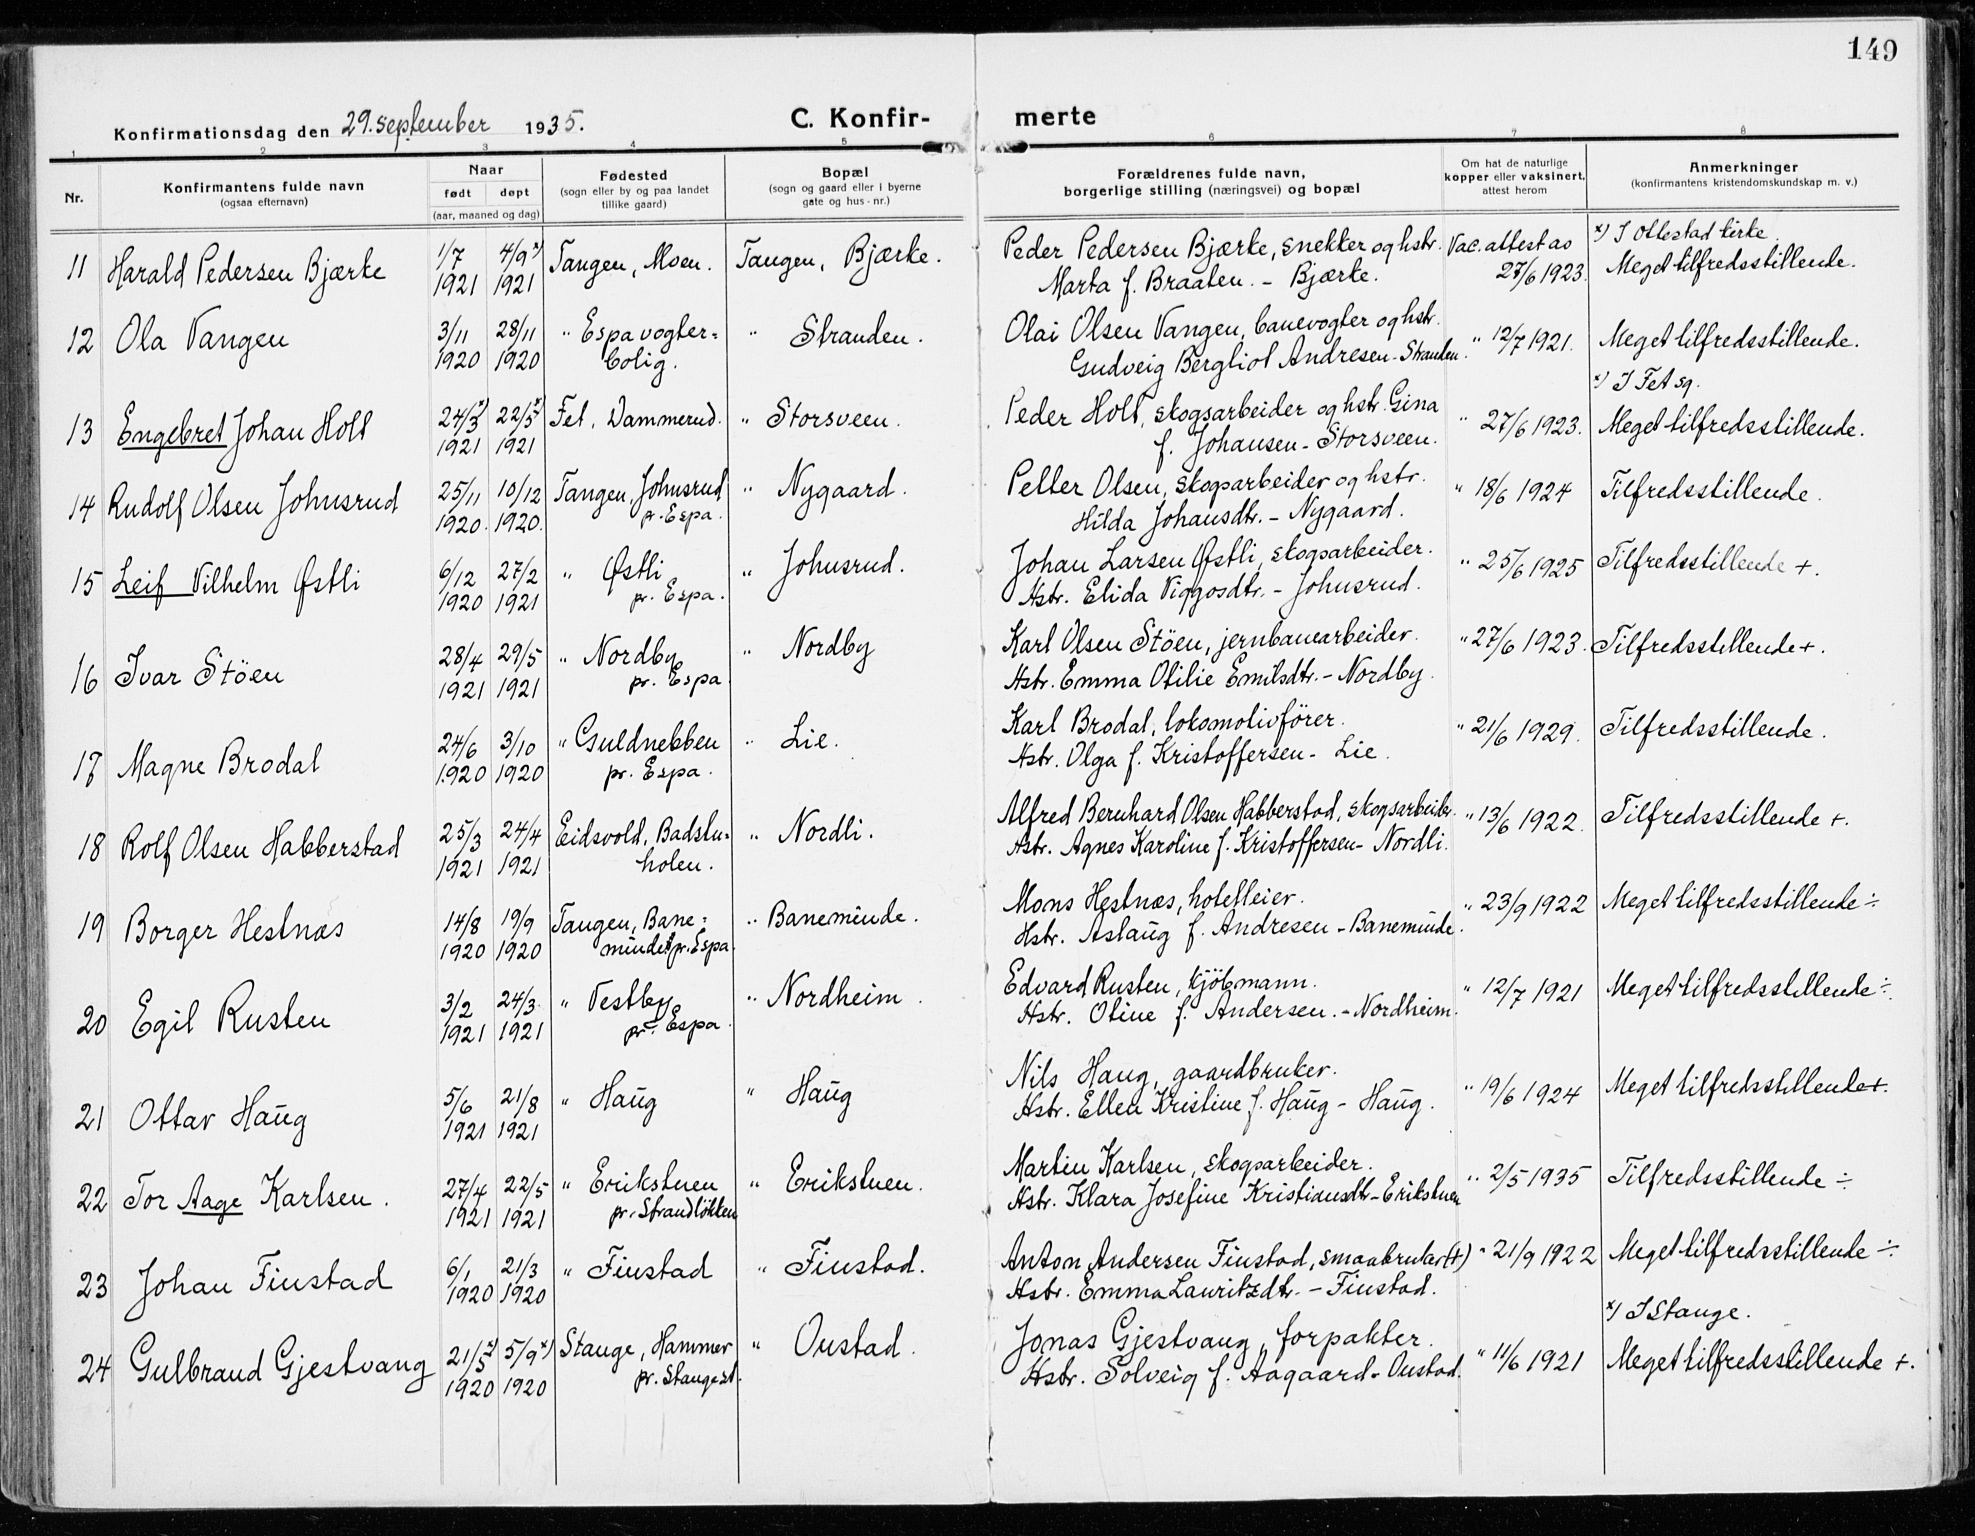 149
Konfirmationsdag den 29. september 1935.
C. Konfir-
merte
1 2 3 4 5 6 7 8
Nr.
Konfirmantens fulde navn
(ogsaa efternavn)
Naar
født døpt
(aar, maaned og dag)
Fødested
(sogn eller by og paa landet
tillike gaard)
Bopæl
(sogn og gaard eller i byerne
gate og hus-nr.)
Forældrenes fulde navn,
borgerlige stilling (næringsvei) og bopæl
Om hat de naturlige
kopper eller vaksinert,
attest herom
Anmerkninger
(konfirmantens kristendomskundskap m. v.)
x) I Ottestad kirke.
11 Harald Pedersen Bjærke 1/7 4/9 x) Tangen, Moen. Tangen, Bjærke. Peder Pedersen Bjærke, snekker og hstr. Vac. attest av Meget tilfredsstillende.
1921 1921 Marta f. Braaten. - Bjærke. 27/6 1923.
12 Ola Vangen 3/11 28/11 " Espa vogter= " Stranden. Olai Olsen Vangen, banevogter og hstr. " 12/7 1921. Meget tilfredsstillende.
1920 1920 bolig. Gudveig Bergliot Andresen - Stranden.
x) I Fet sg.
13 Engebret Johan Holt 24/3 x) 22/5 x) Fet, Dammerud. " Storsveen. Peder Holt, skogsarbeider og hstr. Gina " 27/6 1923. Meget tilfredsstillende.
1921 1921 f. Johansen - Storsveen.
14 Rudolf Olsen Johnsrud 25/11 10/12 Tangen, Johnsrud " Nygaard. Petter Olsen, skogsarbeider og hstr. " 18/6 1924 Tilfredsstillende.
1920. 1920. pr. Espa. Hilda Johansdtr. - Nygaard.
15 Leif Vilhelm Østli 6/12 27/2 " Østli " Johnsrud. Johan Larsen Østli, skogsarbeider. " 25/6 1925 Tilfredsstillende +.
1920 1921 pr. Espa. Hstr. Elida Viggosdtr. - Johnsrud.
16 Ivar Stöen 28/4 29/5 " Nordby " Nordby Karl Olsen Stöen, jernbanearbeider. " 27/6 1923. Tilfredsstillende +.
1921 1921 pr. Espa Hstr. Emma Otilie Emilsdtr. - Nordby.
17 Magne Brodal 24/6 3/10 " Guldnebben " Lie. Karl Brodal, lokomotivförer. " 21/6 1929. Tilfredsstillende.
1920 1920 pr. Espa. Hstr. Olga f. Kristoffersen - Lie.
18 Rolf Olsen Habberstad 25/3 24/4 Eidsvold, Badstu= " Nordli. Alfred Bernhard Olsen Habberstad, skogsarbeider " 13/6 1922. Tilfredsstillende +.
1921 1921 holen. Hstr. Agnes Karoline f. Kristoffersen - Nordli.
19 Borger Hestnæs 14/8 19/9 Tangen, Bane= " Baneminde. Mons Hestnæs, hotelleier. " 23/9 1922 Meget tilfredsstillende ÷
1920 1920 minde pr. Espa. Hstr. Aslaug f. Andresen - Baneminde.
20 Egil Rusten 3/2 24/3 " Vestby " Nordheim. Edvard Rusten, kjöbmann. " 12/7 1921 Meget tilfredsstillende ÷.
1921 1921 pr. Espa. Hstr. Otine f. Andersen. - Nordheim.
21 Ottar Haug 5/6 21/8 " Haug " Haug Nils Haug, gaardbruker. " 19/6 1924 Meget tilfredsstillende +.
1921 1921 Hstr. Ellen Kristine f. Haug - Haug.
22 Tor Aage Karlsen. 27/4 22/5 " Erikstuen " Erikstuen. Martin Karlsen, skogsarbeider. " 2/5 1935 Tilfredsstillende ÷
1921 1921 pr. Strandlökken Hstr. Klara Josefine Kristiansdtr - Erikstuen
23 Johan Finstad 6/1 21/3 " Finstad " Finstad. Anton Andersen Finstad, smaabruker (+) " 21/9 1922 Meget tilfredsstillende ÷.
1920 1920 Hstr. Emma Lauritzdtr. - Finstad.
x) I Stange.
24 Gulbrand Gjestvang 21/5 x) 5/9 x) Stange, Hammer " Oustad. Jonas Gjestvang, forpakter. " 11/6 1921 Meget tilfredsstillende +.
1920 1920 pr. Stange st. Hstr. Solveig f. Aagaard - Oustad.